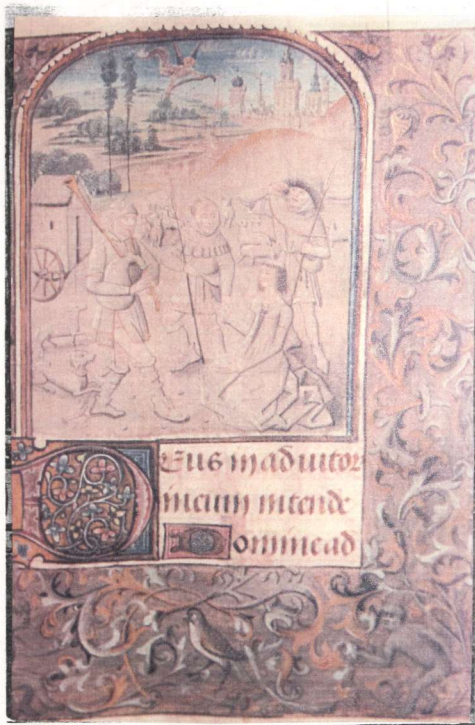 DEus in adiutor
meum intende
Domine ad